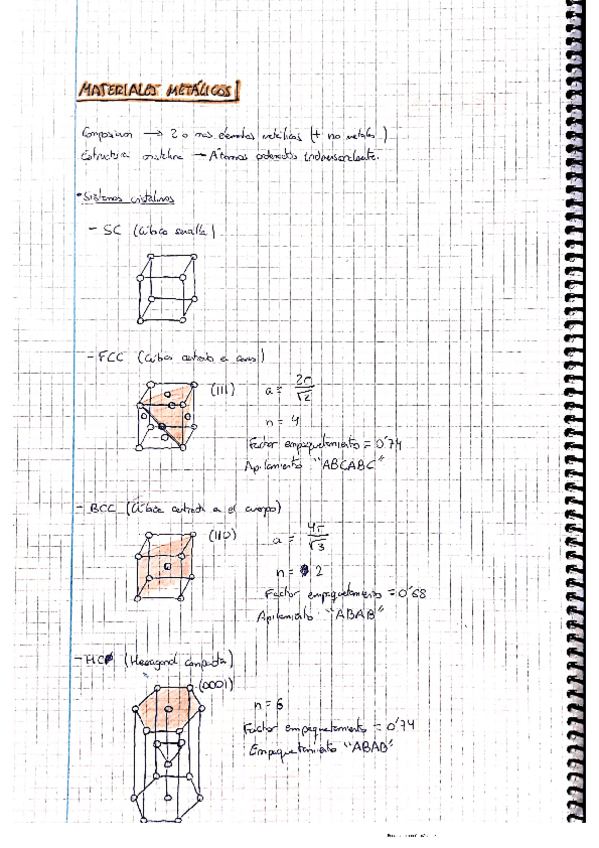 MATERIALES METÁLICOS
Composicion → 2 o mas elementos metálicos (+ no metales)
Estructura cristalina → Átomos ordenados tridimensionalmente.
• Sistemas cristalinos
- SC (Cúbico sencilla)
- FCC (Cúbica centrada en caras)
(111)
a = 2r / √2
n = 4
Factor empaquetamiento = 0'74
Apilamiento "ABCABC"
- BCC (Cúbica centrada en el cuerpo)
(110)
a = 4r / √3
n = 2
Factor empaquetamiento = 0'68
Apilamiento "ABAB"
- HC (Hexagonal compacta)
(0001)
n = 6
Factor empaquetamiento = 0'74
Empaquetamiento "ABAB"